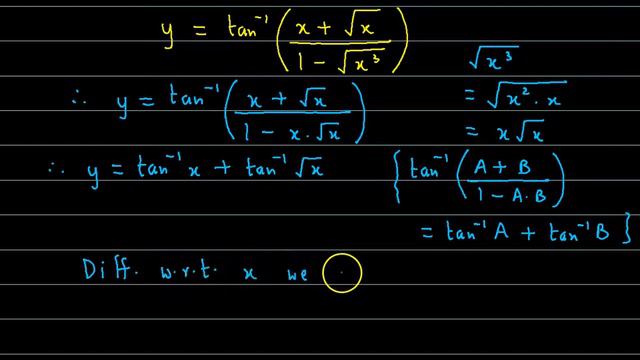 y = tan⁻¹ ( (x + √x) / (1 − √x³) )
√x³
∴ y = tan⁻¹ ( (x + √x) / (1 − x.√x) )
= √x².x
= x√x
∴ y = tan⁻¹ x + tan⁻¹ √x
{ tan⁻¹ ( (A + B) / (1 − A.B) )
= tan⁻¹ A + tan⁻¹ B }
Diff. w.r.t. x we